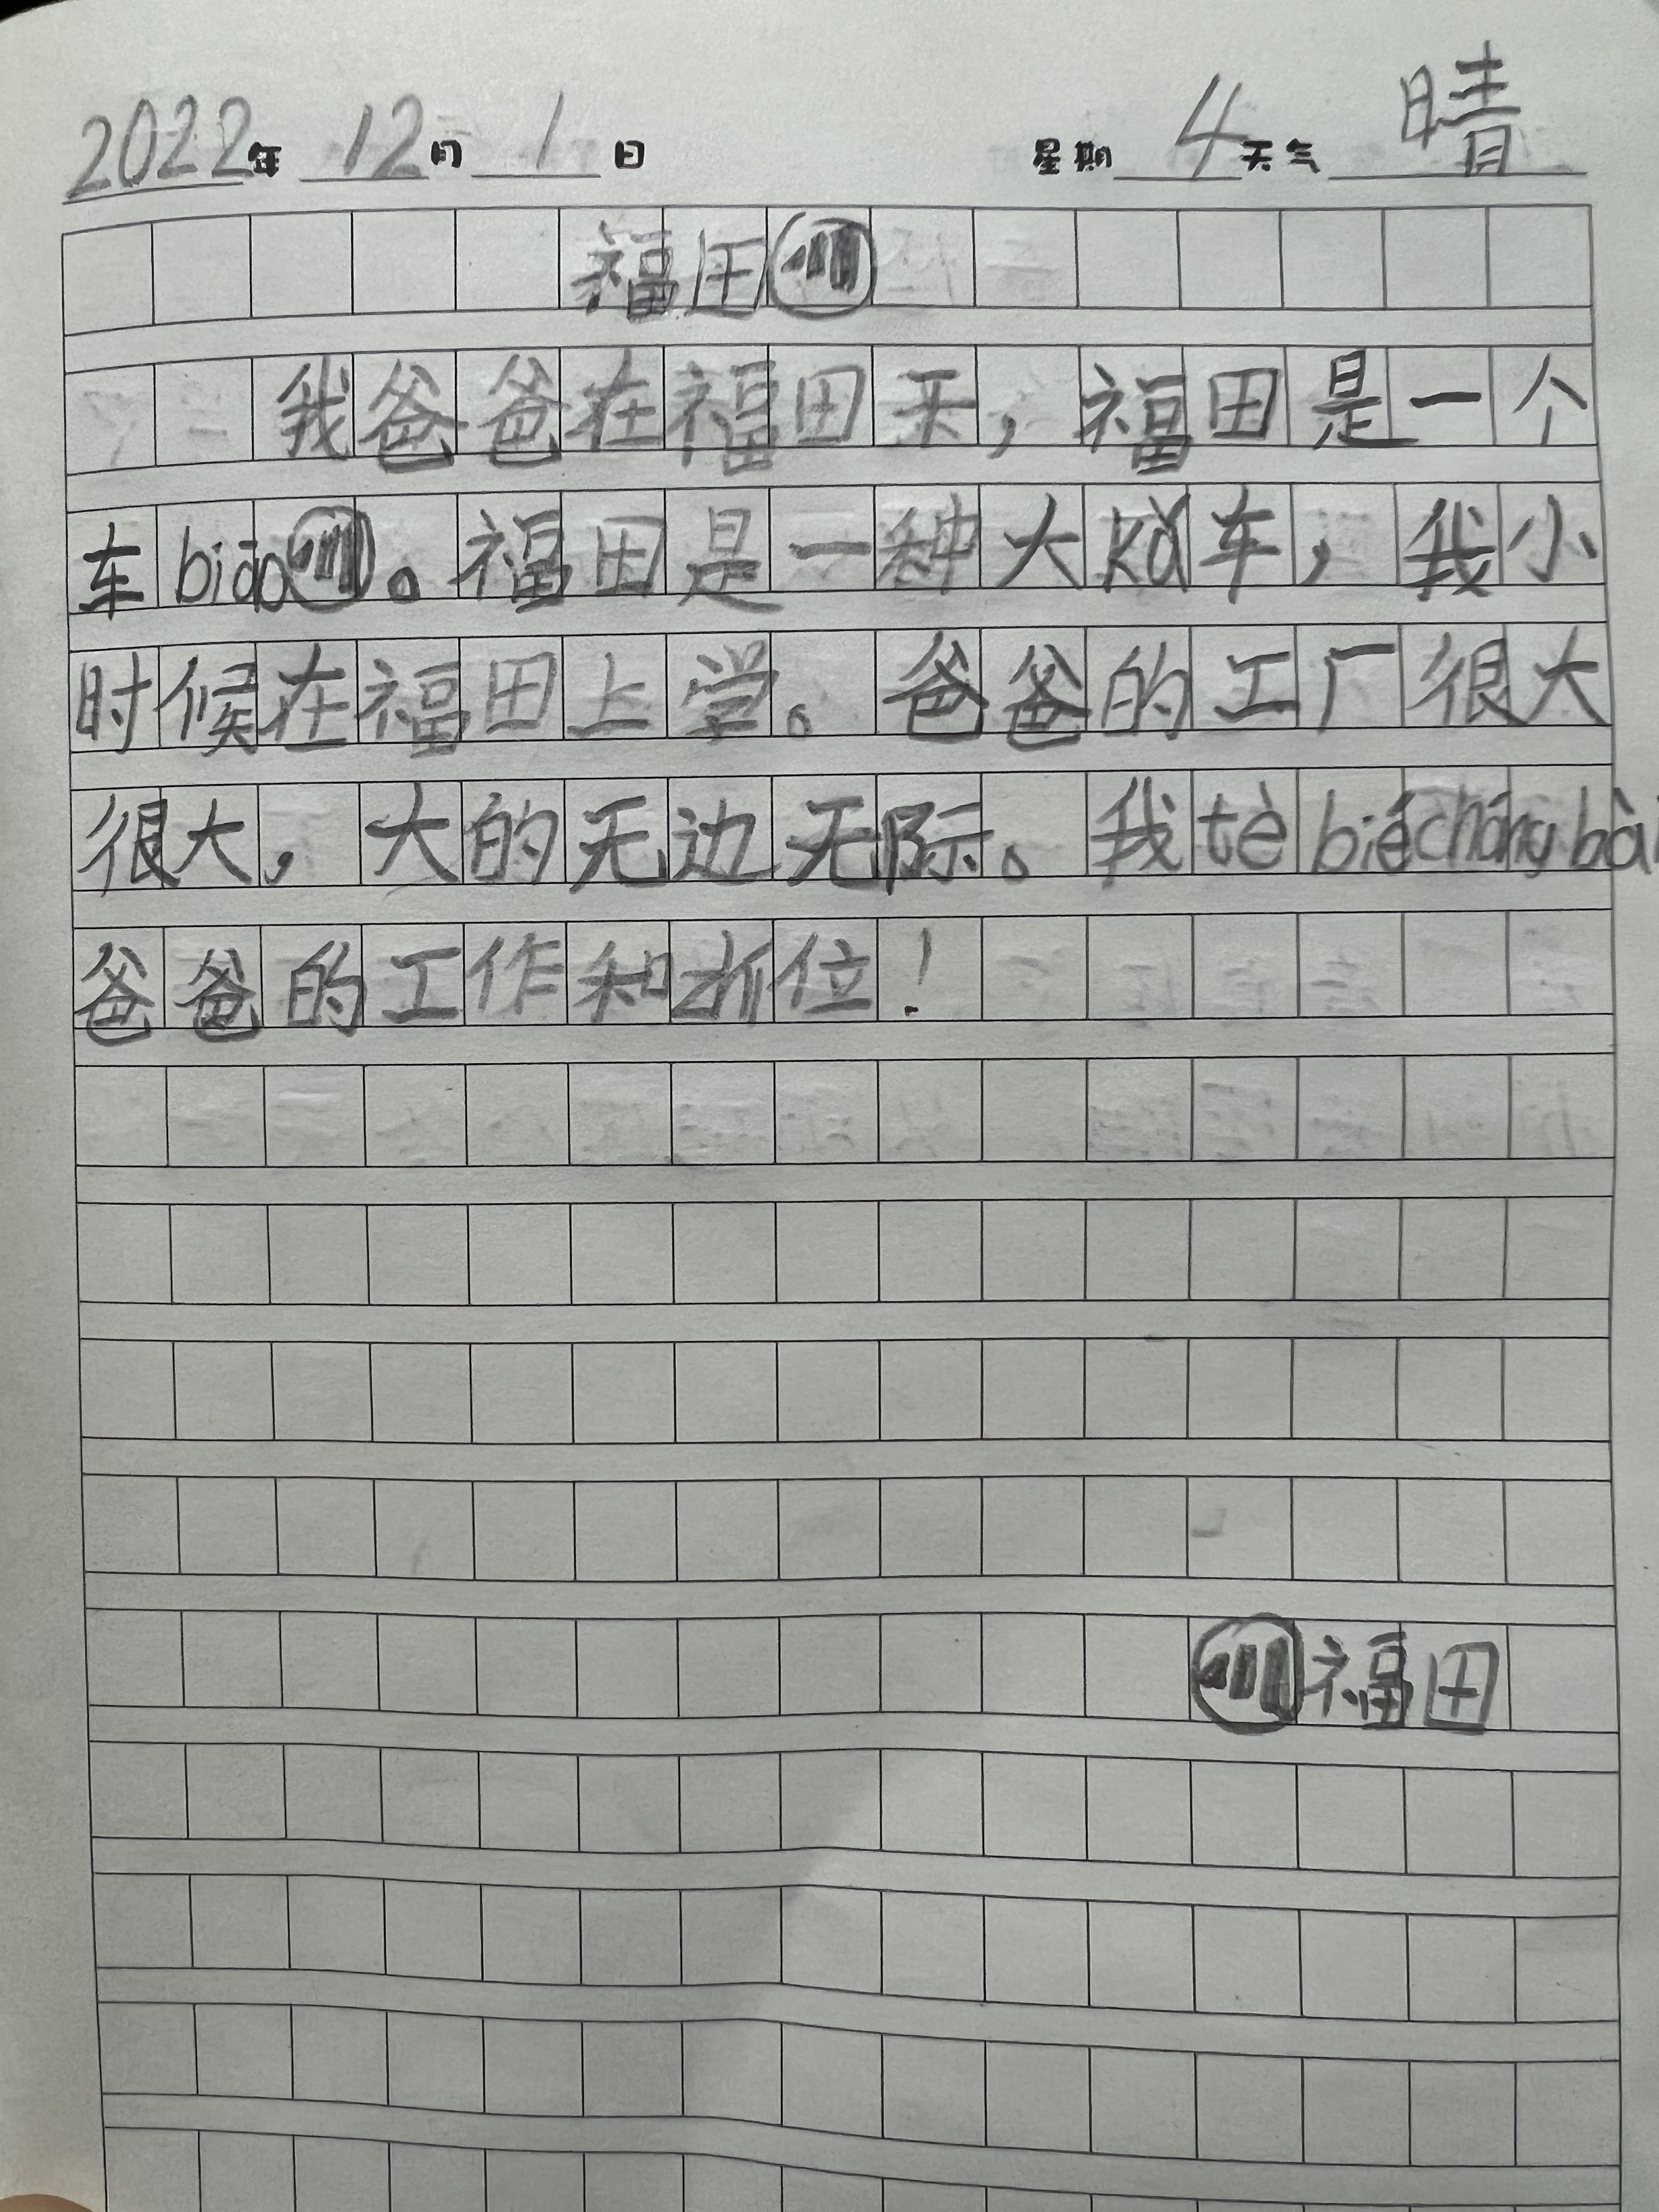 2022年 12月 1日 星期 4 天气 晴
福田
我爸爸在福田天，福田是一个
车biāo。福田是一种大kǎ车，我小
时候在福田上学。爸爸的工厂很大
很大，大的无边无际。我tè bié chóng bài
爸爸的工作和位！
福田